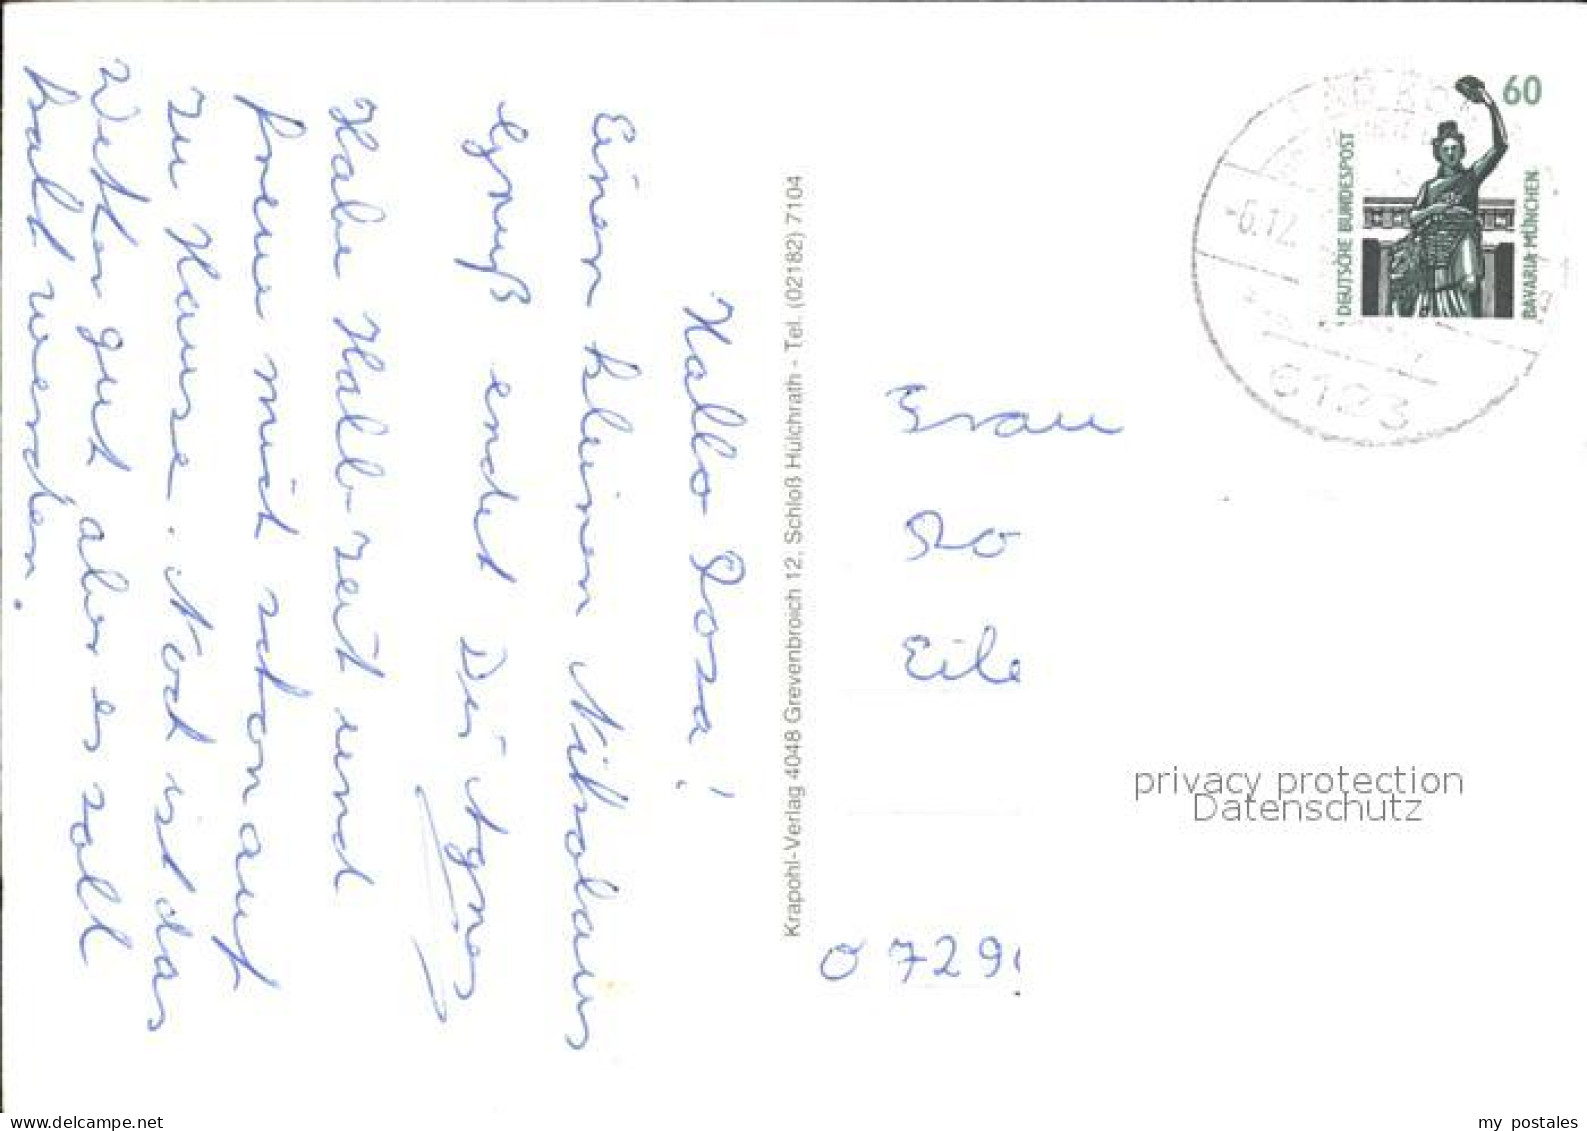 Hallo Rosa!
Einen kleinen Nikolaus
Gruß endet Dir Agnes
Habe Halb-zeit und
freue mich schon auf
zu Hause. Noch ist das
Wetter gut, aber es soll
bald werden.
Krapohl-Verlag 4048 Grevenbroich 12, Schloß Hülchrath - Tel. (02182) 7104
60
DEUTSCHE BUNDESPOST
BAVARIA MÜNCHEN
-6.12.
6123
Frau
Ro
Eile
O 729
privacy protection
Datenschutz
www.delcampe.net
my_postales